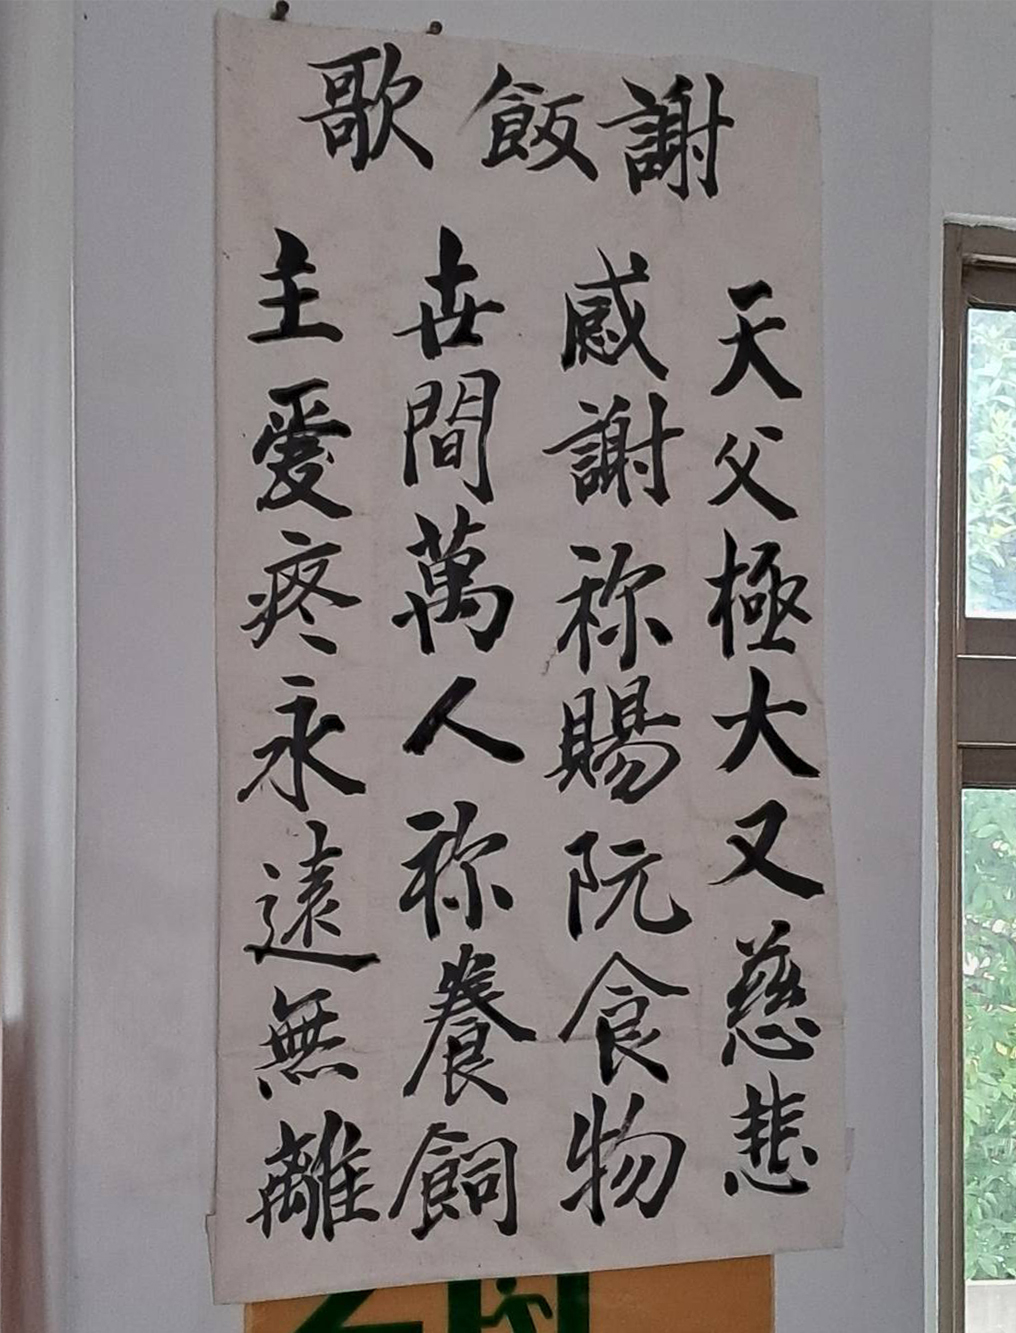 謝飯歌
天父極大又慈悲
感謝祢賜阮食物
世間萬人祢養飼
主愛疼永遠無離